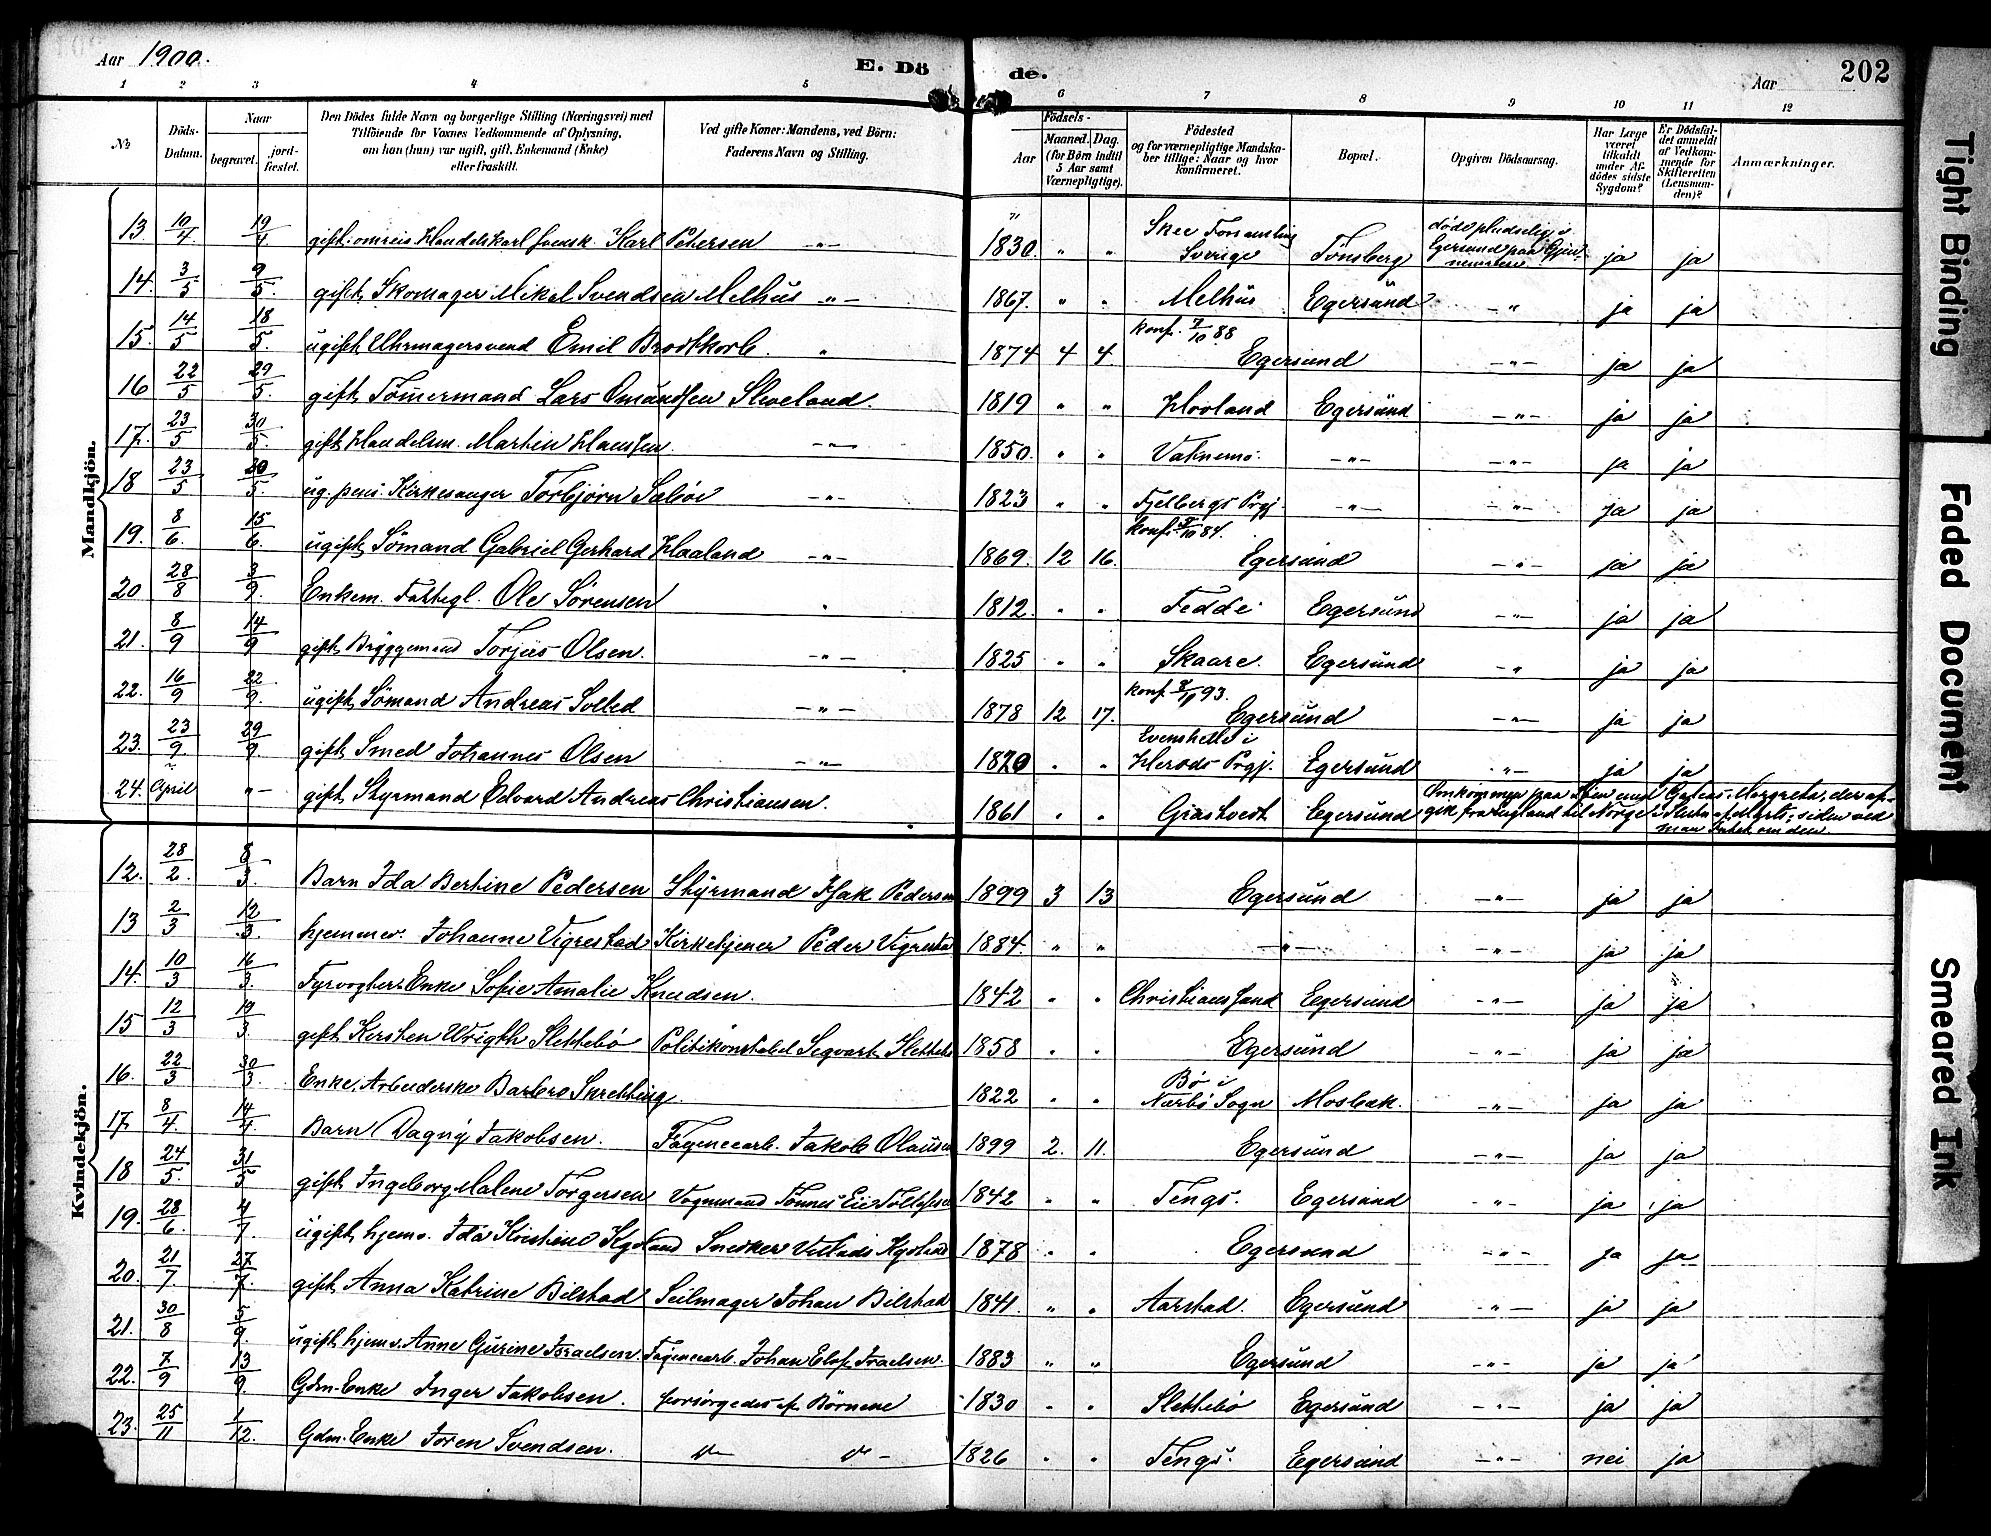 Aar 1900. E. Dö
de. Aar 202
1 2 3 4 5 6 7 8 9 10 11 12
No
Döds-Datum.
Naar
begravet.
jord-fæstet.
Den Dödes fulde Navn og borgerlige Stilling (Næringsvei) med
Tilföiende for Voxnes Vedkommende af Oplysning,
om han (hun) var ugift, gift, Enkemand (Enke)
eller fraskilt.
Ved gifte Koner: Mandens, ved Börn:
Faderens Navn og Stilling.
Födsels-
Aar
Maaned. Dag.
(for Børn indtil
5 Aar samt
Værnepligtige).
Födested
og for værnepligtige Mandska-
ber tillige: Naar og hvor
konfirmeret.
Bopæl.
Opgiven Dödsaarsag.
Har Læge
været
tilkaldt
under Af-
dödes sidste
Sygdom?
Er Dödsfal-
det anmeldt
af Vedkom-
mende for
Skifteretten
(Lensman-
den)?
Anmærkninger.
Mandkjön.
13. 19/4 19/4 gift. omreis. Handelskarl svensk. Karl Petersen -"- 1830. " " Skee Sverige Tönsberg döde pludselig i Egersund paa Gjen- ja ja
14. 3/5 9/5. gift, Skomager Mikal Svendsen Melhus "- 1867. " " Melhus Egersund -"- ja ja
15. 14/5 18/5. ugift, Uhrmagersvend Emil Brodtkorb. " 1874 4 4. konf. 7/10 88 Egersund -"- ja ja
16 22/5 29/5. gift, Tömmermand Lars Omundsen Sleveland. 1819 " " Hovland Egersund -"- ja ja
17. 23/5 30/5. gift, Handelsm. Martin Hanssen. -"- 1850. " " Vatnemo. -"- -"- ja ja
18 23/5 30/5. ug. pens. Kirkesanger Torbjørn Sæböe -"- 1823 " " Fjelbergs Prgj. -"- -"- ja ja
19. 8/6 15/6. ugift, Sömand Gabriel Gerhard Haaland -"- 1869. 12 16. konf. 5/10 84. Egersund -"- ja ja
20 28/8 3/9. Enkem. Fattigl. Ole Sörensen " 1812. " " Fedde Egersund -"- ja ja
21. 8/9 14/9 gift, Bryggemand Torjus Olsen. -"- 1825 " " Skaare. Egersund -" ja ja
22. 16/9 22/9. ugift, Sömand Andreas Solled -"- 1878 12 17. konf. 93. Egersund -"- ja ja
23. 23/9 29/9 gift, Smed Johannes Olsen -"- 1820 " " i Herods Prgj. Egersund "- ja ja
24. April "- gift, Styrmand Edvard Andreas Christiansen. 1861 " " Græstvedt Egersund Omkommen paa Söen med Galeas Margreta, der af-
gik fra England til Norge i Slutn. af Marts, siden ved
man Intet om den.
Kvindekjön.
12. 28/2. 8/3. Barn Ida Bertine Pedersen Styrmand Isak Pedersen 1899 3 13 Egersund -"- ja ja
13 2/3 12/3. hjemmev. Johanne Vigrestad Kirketjener Peder Vigrestad 1884. " " -"- -"- ja ja
14. 10/3 16/3. Fyrvogters Enke Sofie Amalie Knudsen. 1842 " " Christianssand Egersund -"- ja ja
15 12/3 19/3. gift Kirsten Wrigth Slettebö Politikonstabel Segvart Slettebö 1858 " " Egersund -"- ja ja
16. 22/3 30/3. Enke, Arbeiderske Barbro Skretting 1822 " " Bö i Nærbö Sogn Mosbæk. -"- ja ja
17. 8/4 14/4. Barn Dagny Jakobsen. Fayencearb. Jakob Olausen 1899 2. 11. Egersund -"- ja ja
18 24/5. 31/5 gift, Ingeborg Malene Torgersen Vognmand Tönnes Eie Tollefsen 1842 " " Tengs. Egersund -"- ja ja
19. 28/6. 4/7. ugift, hjemv. Ida Kristine Kydland Snedker Kydland 1878 " " Egersund -"- ja ja
20. 21/7. 27/7. gift, Anna Katrine Bilstad Seilmager Johan Bilstad 1841. " " Aarstad. Egersund -"- ja ja
21. 30/8 5/9. ugift, hjemv. Anne Gurine Israelsen. Fayencearb. Johan Elof Israelsen. 1883 " " Egersund -"- ja ja
22. 7/9 13/9. Gdm.-Enke Inger Jakobsen. forsörgedes af Börnene 1830 " " Slettebö Egersund -"- ja ja
23. 25/11 1/12. Gdm.-Enke Joren Svendsen. " " 1826 " " Tengs. Egersund -"- nei ja
Tight Binding
Faded Document
Smeared Ink